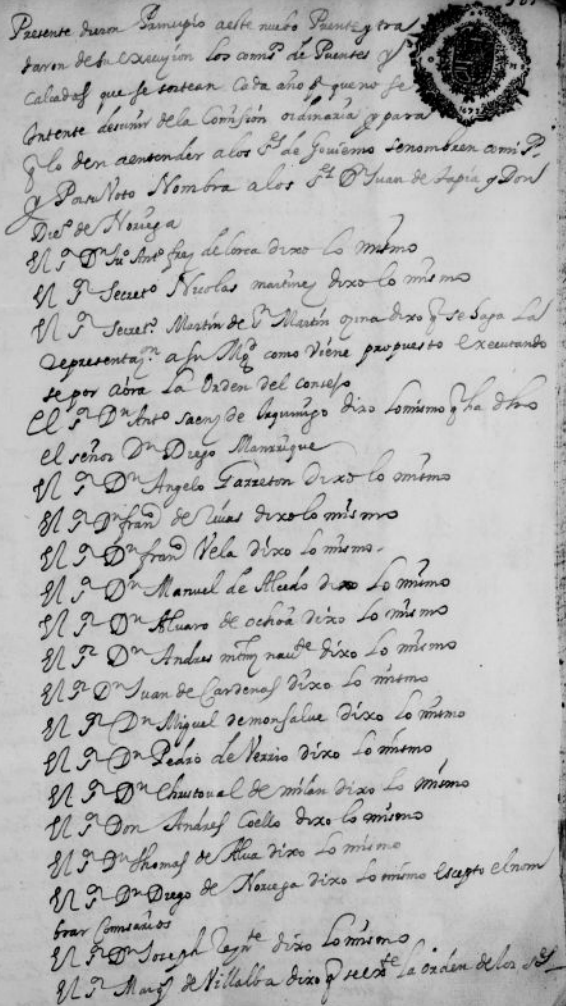 Presente dieron Principio a este nuebo Puente y tra
taron de su execuçion los comis.s de Puentes y
Calçadas que se sortean Cada año y que no se
Yntente desunir de la Comision ordinaria y para
q lo den a entender a los S.res de Govierno se nombren comis.s
y Por su Voto Nombra a los S.res D.n Juan de tapia y Don
Die.o de Noriega
El s.r D.n Ju.o Ant.o de lorca dixo lo mismo
El s.r Secret.o Nicolas martinez dixo lo mismo
El s.r Secret.o Martin de S.n Martin ozina dixo q se haga La
representaz.on a su Mg.d como viene propuesto executando
se por aora La Orden del consejo
El s.r D.n Ant.o saenz de dixo lo mismo q ha dho
el señor D.n Diego Manrrique
El s.r D.n Angelo Garreton dixo lo mismo
El s.r D.n fran.co de Rivas dixo lo mismo
El s.r D.n fran.co Vela dixo lo mismo.
El s.r D.n Manuel de Alcedo dixo lo mismo
El s.r D.n Alvaro de ochoa dixo lo mismo
El s.r D.n Andres mrnz nau.te dixo lo mismo
El s.r D.n Juan de Cardenas dixo lo mismo
El s.r D.n Miguel de monsalue dixo lo mismo
El s.r D.n Pedro de Verrio dixo lo mismo
El s.r D.n Christoual de milan dixo lo mismo
El s.r Don Andres Coello dixo lo mismo
El s.r D.n thomas de Alua dixo lo mismo
El s.r D.n Diego de Noriega dixo lo mismo Escepto el nom
brar Comisarios
El s.r D.n Joseph dixo lo mismo
El s.r Marq.s de Villalba dixo q se ex.te la orden de los s.res